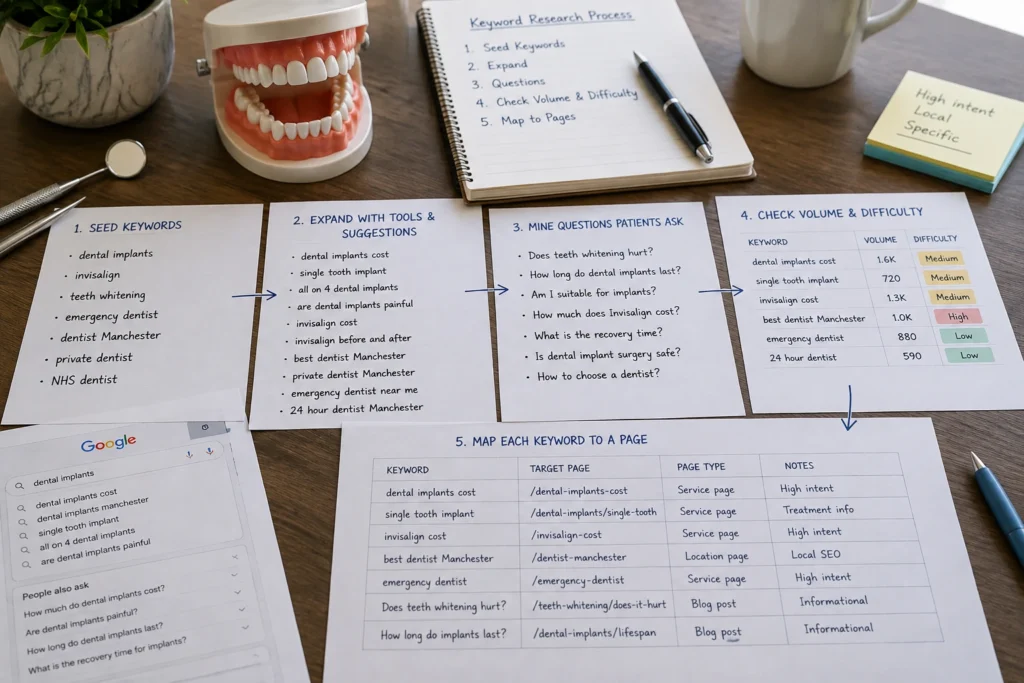 Keyword Research Process
1. Seed Keywords
2. Expand
3. Questions
4. Check Volume & Difficulty
5. Map to Pages
High intent
Local
Specific
1. SEED KEYWORDS
• dental implants
• invisalign
• teeth whitening
• emergency dentist
• dentist Manchester
• private dentist
• NHS dentist
2. EXPAND WITH TOOLS &
SUGGESTIONS
• dental implants cost
• single tooth implant
• all on 4 dental implants
• are dental implants painful
• invisalign cost
• invisalign before and after
• best dentist Manchester
• private dentist Manchester
• emergency dentist near me
• 24 hour dentist Manchester
3. MINE QUESTIONS PATIENTS ASK
• Does teeth whitening hurt?
• How long do dental implants last?
• Am I suitable for implants?
• How much does Invisalign cost?
• What is the recovery time?
• Is dental implant surgery safe?
• How to choose a dentist?
4. CHECK VOLUME & DIFFICULTY
KEYWORD VOLUME DIFFICULTY
dental implants cost 1.6K Medium
single tooth implant 720 Medium
invisalign cost 1.3K Medium
best dentist Manchester 1.0K High
emergency dentist 880 Low
24 hour dentist 590 Low
Google
dental implants
dental implants cost
dental implants manchester
single tooth implant
all on 4 dental implants
are dental implants painful
People also ask
How much do dental implants cost?
Are dental implants painful?
How long do dental implants last?
What is the recovery time for implants?
5. MAP EACH KEYWORD TO A PAGE
KEYWORD TARGET PAGE PAGE TYPE NOTES
dental implants cost /dental-implants-cost Service page High intent
single tooth implant /dental-implants/single-tooth Service page Treatment info
invisalign cost /invisalign-cost Service page High intent
best dentist Manchester /dentist-manchester Location page Local SEO
emergency dentist /emergency-dentist Service page High intent
Does teeth whitening hurt? /teeth-whitening/does-it-hurt Blog post Informational
How long do implants last? /dental-implants/lifespan Blog post Informational